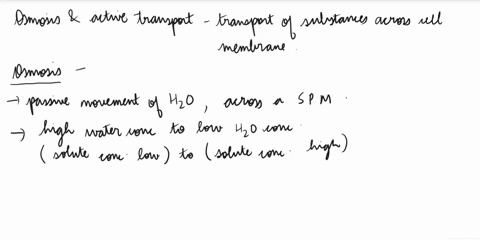 Osmosis & active transport - transport of substances across cell
membrane.
Osmosis -
→ passive movement of H2O, across a SPM.
→ high water conc to low H2O conc
(solute conc. low) to (solute conc. high)